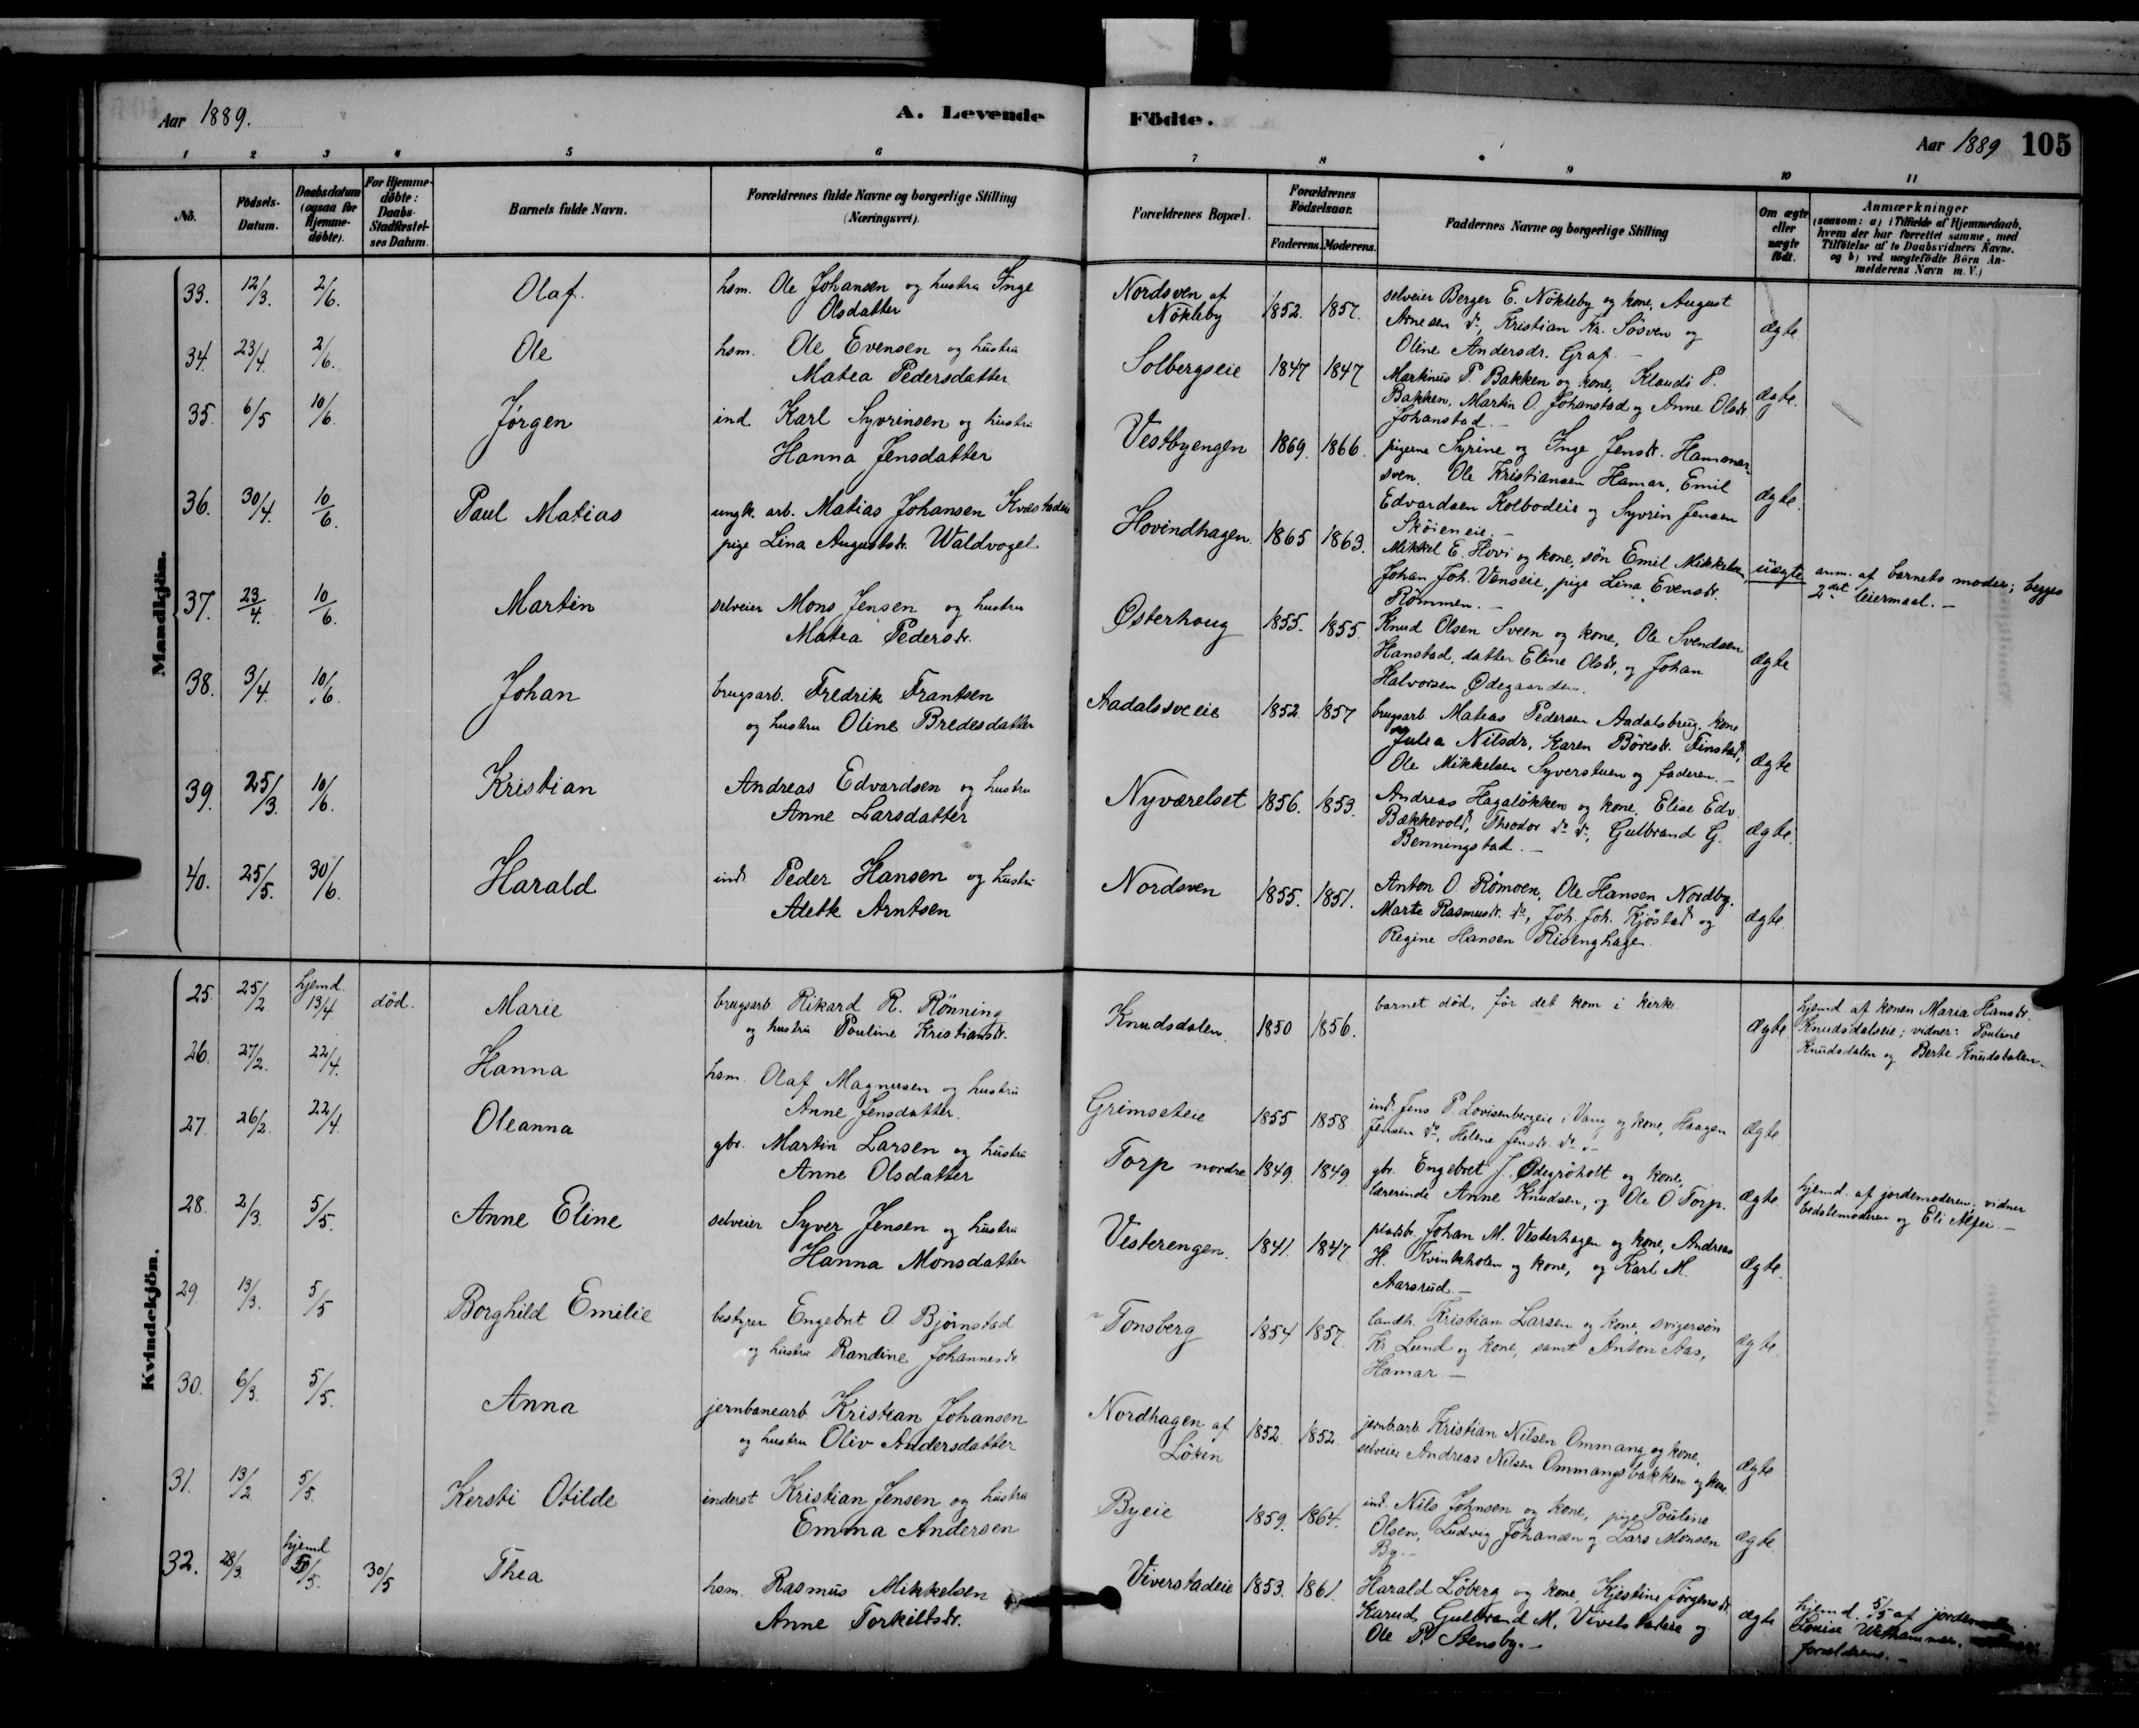 Aar 1889.
A. Levende Födte.
Aar 1889 105
1 2 3 4 5 6 7 8 9 10 11
No.
Födsels-Datum.
Daabsdatum (ogsaa for Hjemme-döbte).
For Hjemme-döbte: Daabs-Stadfæstel-ses Datum.
Barnets fulde Navn.
Forældrenes fulde Navne og borgerlige Stilling (Næringsvei).
Forældrenes Bopæl.
Forældrenes Födselsaar.
Faderens. Moderens.
Faddernes Navne og borgerlige Stilling
Om ægte eller uægte födt.
Anmærkninger
(saasom: a) i Tilfælde af Hjemmedaab,
hvem der har forrettet samme, med
Tilföielse af to Daabsvidners Navne.
og b) ved uægtefödte Börn An-
melderens Navn m. V.)
Mandkjön.
33. 12/3. 2/6. Olaf. hsm. Ole Johansen og hustru Inge
Olsdatter
Nordsven af
Nökleby 1852. 1857.
selveier Berger E. Nökleby og kone, August
Arnesen do, Kristian Kr. Sösven og
Oline Andersdr. Graf. –
Ægte
34. 23/4. 2/6. Ole hsm. Ole Evensen og hustru
Matea Pedersdatter
Solbergseie 1847 1847
Martinus P. Bakken og kone, Klaudi P.
Bakken, Martin O. Johanstad og Anne Olsdr.
Johanstad. –
Ægte.
35. 6/5 10/6. Jørgen ind. Karl Syvrinsen og hustru
Hanna Jensdatter
Vestbyengen 1869. 1866.
pigerne Syrine og Inge Jensdr. Hammar-
sven, Ole Kristiansen Hamar, Emil
Edvardsen Kolbodeie og Syvrin Jensen
Skøieneie. –
Ægte.
36. 30/4. 10/6. Paul Matias ungk. arb. Matias Johansen Kvæstadeie
pige Lina Augustsdr. Waldvogel
Hovindhagen. 1865 1863.
Mikkel E. Hovi og kone, søn Emil Mikkelsen,
Johan Joh. Vanseie, pige Lina Evensdr.
Rømmen. –
uægte
anm. af barnets moder; begges
2det leiermaal. –
37. 23/4. 10/6. Martin selveier Mons Jensen og hustru
Matea Pedersdr.
Østerhoug 1855. 1855.
Knud Olsen Sveen og kone, Ole Svendsen
Hanstad, datter Eline Olsdr, og Johan
Halvorsen Ødegaarden.
Ægte
38. 3/4. 10/6. Johan brugsarb. Fredrik Frantsen
og hustru Oline Bredesdatter
Aadalssveie 1852 1857
brugsarb. Mateas Pedersen Aadalsbrug, kone
Julia Nilsdr, Karen Böresdr. Finstad,
Ole Mikkelsen Syverstuen og faderen. –
Ægte
39. 25/3. 10/6. Kristian Andreas Edvardsen og hustru
Anne Larsdatter
Nyværelset 1856. 1853.
Andreas Hagalökken og kone, Elise Edv.
Bækkevold, Theodor do do, Gulbrand G.
Benningstad. –
Ægte.
40. 25/5. 30/6. Harald indr. Peder Hansen og hustru
Alette Arntsen
Nordsven 1855. 1851.
Anton O. Römoen, Ole Hansen Nordby,
Marte Rasmusdr. do, Joh. Joh. Kjöstad og
Regine Hansen Risenghagen.
Ægte.
Kvindekjön.
25. 25/2 hjemd. 13/4 död. Marie brugsarb. Rikard R. Rönning
og hustru Pouline Kristiansdr.
Knudsdalen. 1850 1856.
barnet död, för det kom i kirke
Ægte
hjemd. af konen Maria Hansdr.
Knudsdalseie; vidner: Pouline
Knudsdalen og Berte Knudsdalen. –
26. 27/2. 22/4. Hanna hsm. Olaf Magnusen og hustru
Anne Jensdatter.
Grimseteie 1855 1858.
ind. Jens P. Lovisenbergeie i Vang og kone, Haagen
Jensen do, Helene Jensdr. do. –
Ægte
27. 26/2. 22/4. Oleanna gbr. Martin Larsen og hustru
Anne Olsdatter
Torp nordre 1849. 1849.
gbr. Engebret J. Ødegröholt og kone,
lærerinde Anne Knudsen, og Ole O Torp.
Ægte
hjemd. af jordemoderen, vidner
bedstemoderen og Eli Alfei. –
28. 2/3. 5/5. Anne Eline selveier Syver Jensen og hustru
Hanna Monsdatter
Vesterengen. 1841. 1847.
pladsbr. Johan M. Vesterhagen og kone, Andreas
H. Kvinkholen og kone, og Karl M.
Aarsrud. –
Ægte.
29. 13/3. 5/5 Borghild Emilie bestyrer Engebret O. Björnstad
og hustru Randine Johannesdr.
Tonsberg 1854 1857.
landh. Kristian Larsen og kone, svigersøn
Kr. Lund og kone, samt Anton Aas,
Hamar. –
Ægte.
30. 6/3. 5/5. Anna jernbanearb. Kristian Johansen
og hustru Oliv Andersdatter
Nordhagen af
Løken 1852. 1852.
jernb.arb. Kristian Nilsen Ommang og kone,
selveier Andreas Nilsen Ommangsbakken og kone.
Ægte
31. 13/2 5/5. Kersti Otilde inderst Kristian Jensen og hustru
Emma Andersen
Byeie 1859. 1864.
ind. Nils Johnsen og kone, pige Pouline
Olsen, Ludvig Johansen og Lars Monsen
By. –
Ægte.
32. 28/3. hjemd 5/5. 30/5 Thea hsm. Rasmus Mikkelsen
Anne Torkildsdr.
Viverstadeie 1853. 1861.
Harald Løberg og kone, Kjestine Jørgensdr.
Karud, Gulbrand M. Vivelstadeie og
Ole P. Stensby. –
Ægte
hjemd. 5/5 af jordem
Louise
forældrene. –